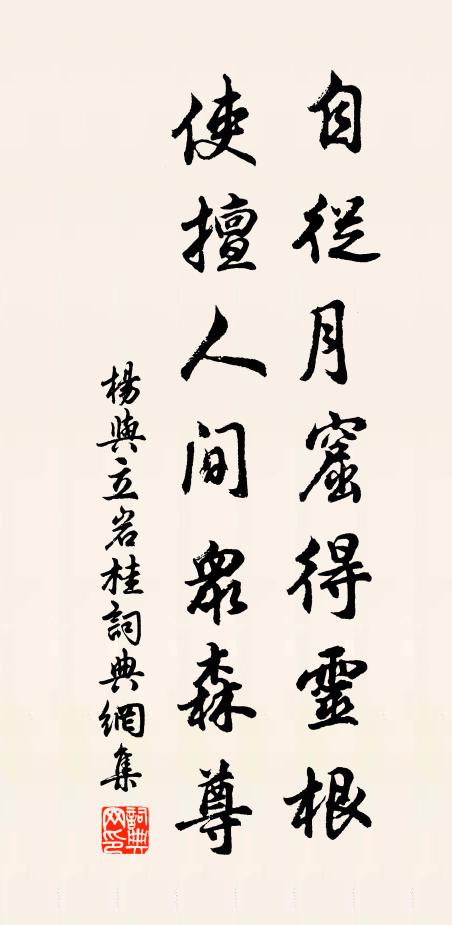 自從月窟得靈根
使擅人間眾森尊
楊與立岩桂詞典網集
詞典网印